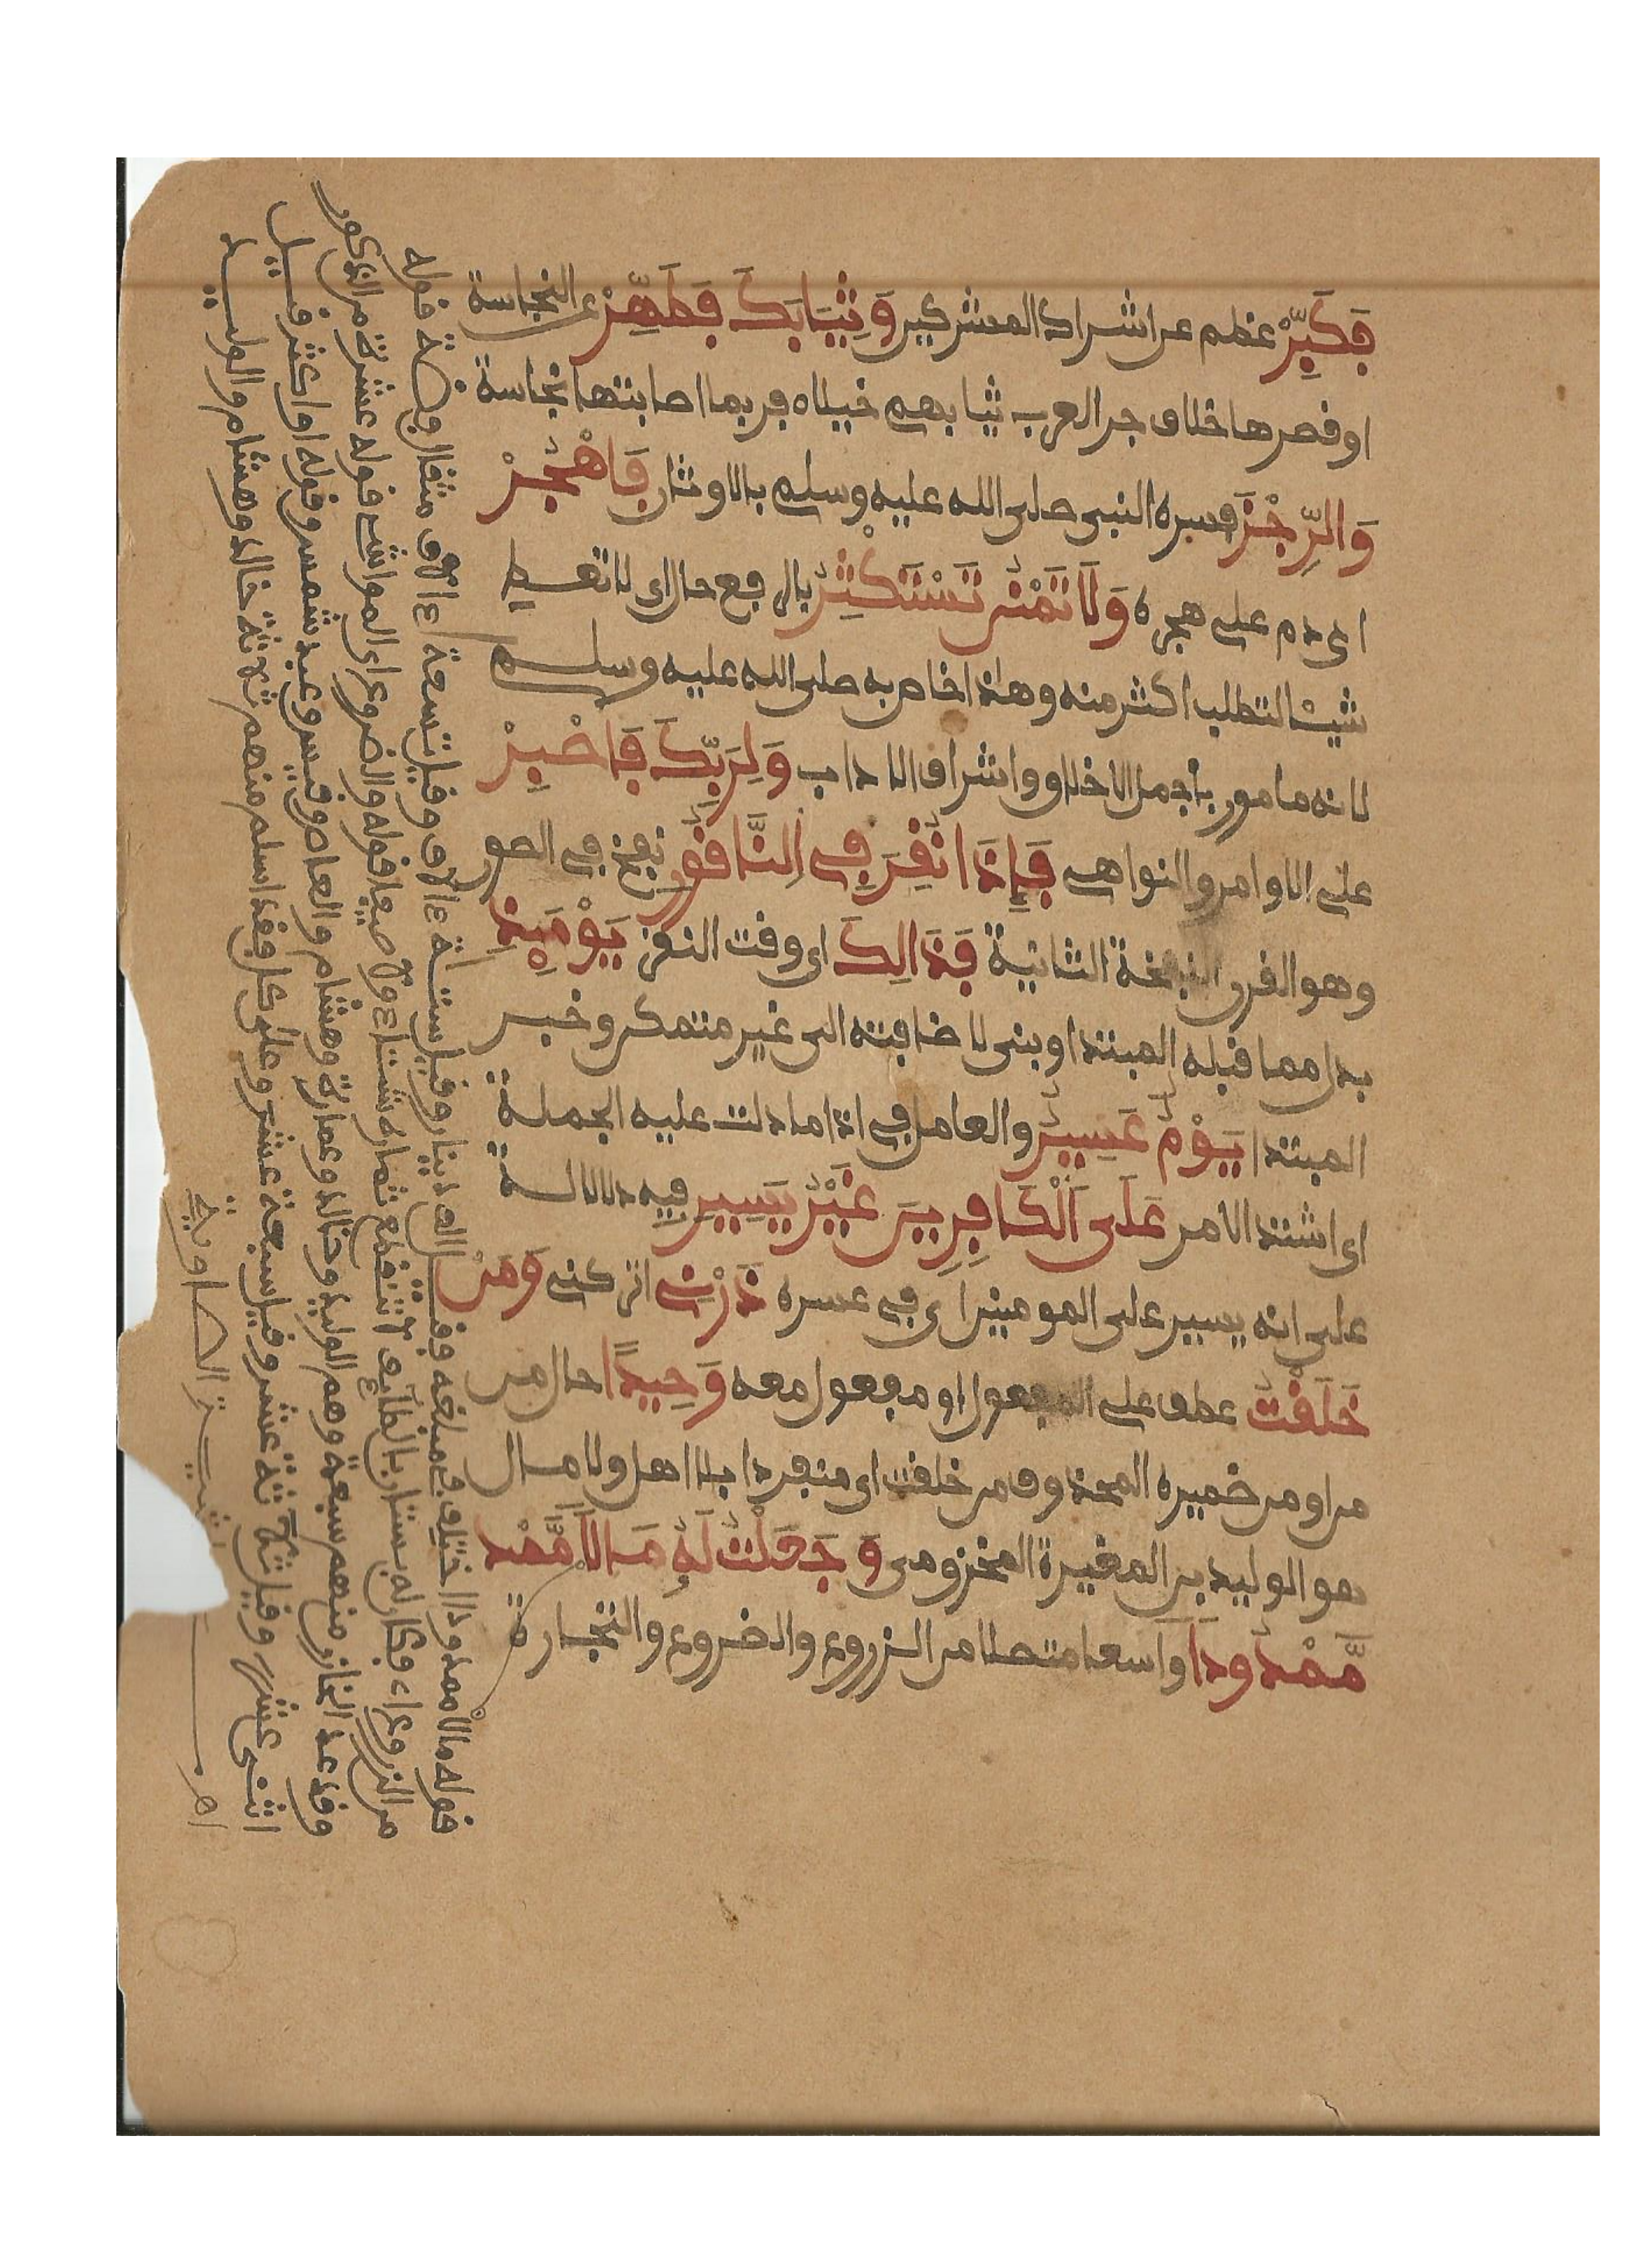 فَكَبِّرْ عظم عن اشراك المشركين وَثِيَابَكَ فَطَهِّرْ عن النجاسة
او قصرها خلاف جر العرب ثيابهم خيلاء فربما اصابتها نجاسة
وَالرِّجْزَ فسره النبي صلى الله عليه وسلم بالاوثان فَاهْجُرْ
اي دم على هجره وَلَا تَمْنُن تَسْتَكْثِرُ بالرفع حال اي لا تعط
شيئا لتطلب اكثر منه وهذا خاص به صلى الله عليه وسلم
لانه مامور باجمل الاخلاق واشراف الاداب وَلِرَبِّكَ فَاصْبِرْ
على الاوامر والنواهي فَإِذَا نُقِرَ فِي النَّاقُورِ نفخ في الصور
وهو القرن النفخة الثانية فَذَالِكَ اي وقت النقر يَوْمَئِذٍ
بدل مما قبله المبتدا وبني لاضافته الى غير متمكن وخبر
المبتدا يَوْمٌ عَسِيرٌ والعامل في اذا ما دلت عليه الجملة
اي اشتد الامر عَلَى الْكَافِرِينَ غَيْرُ يَسِيرٍ فيه دلالة
على انه يسير على المومنين اي في عسره ذَرْنِي اتركني وَمَنْ
خَلَقْتُ عطف على المفعول او مفعول معه وَحِيدًا حال من
من او من ضميره المحذوف من خلقت اي منفردا بلا اهل ولا مال
هو الوليد بن المغيرة المخزومي وَجَعَلْتُ لَهُ مَالًا مَّمْد
مَّمْدُودًا واسعا متصلا من الزروع والضروع والتجارة
قوله مالا ممدودا اختلف في مبلغه فقيل الف دينار وقيل ستة ءالاف وقيل تسعة ءالاف مثقال فضة قوله
من الزروع اء فكان له بستان بالطائف لا تنقطع ثماره شتاء ولا صيفا قوله والضروع اي المواشي قوله عشرة من الذكور
وقد عد الخازن منهم سبعة وهم الوليد وخالد وعمارة وهشام والعاص وقيس وعبد شمس وقوله او اكثر قيل
اثنى عشر وقيل ثلاثة عشر وقيل سبعة عشر وعلى كل فقد اسلم منهم ثلاثة خالد وهشام والوليد
الصاوية اهـ